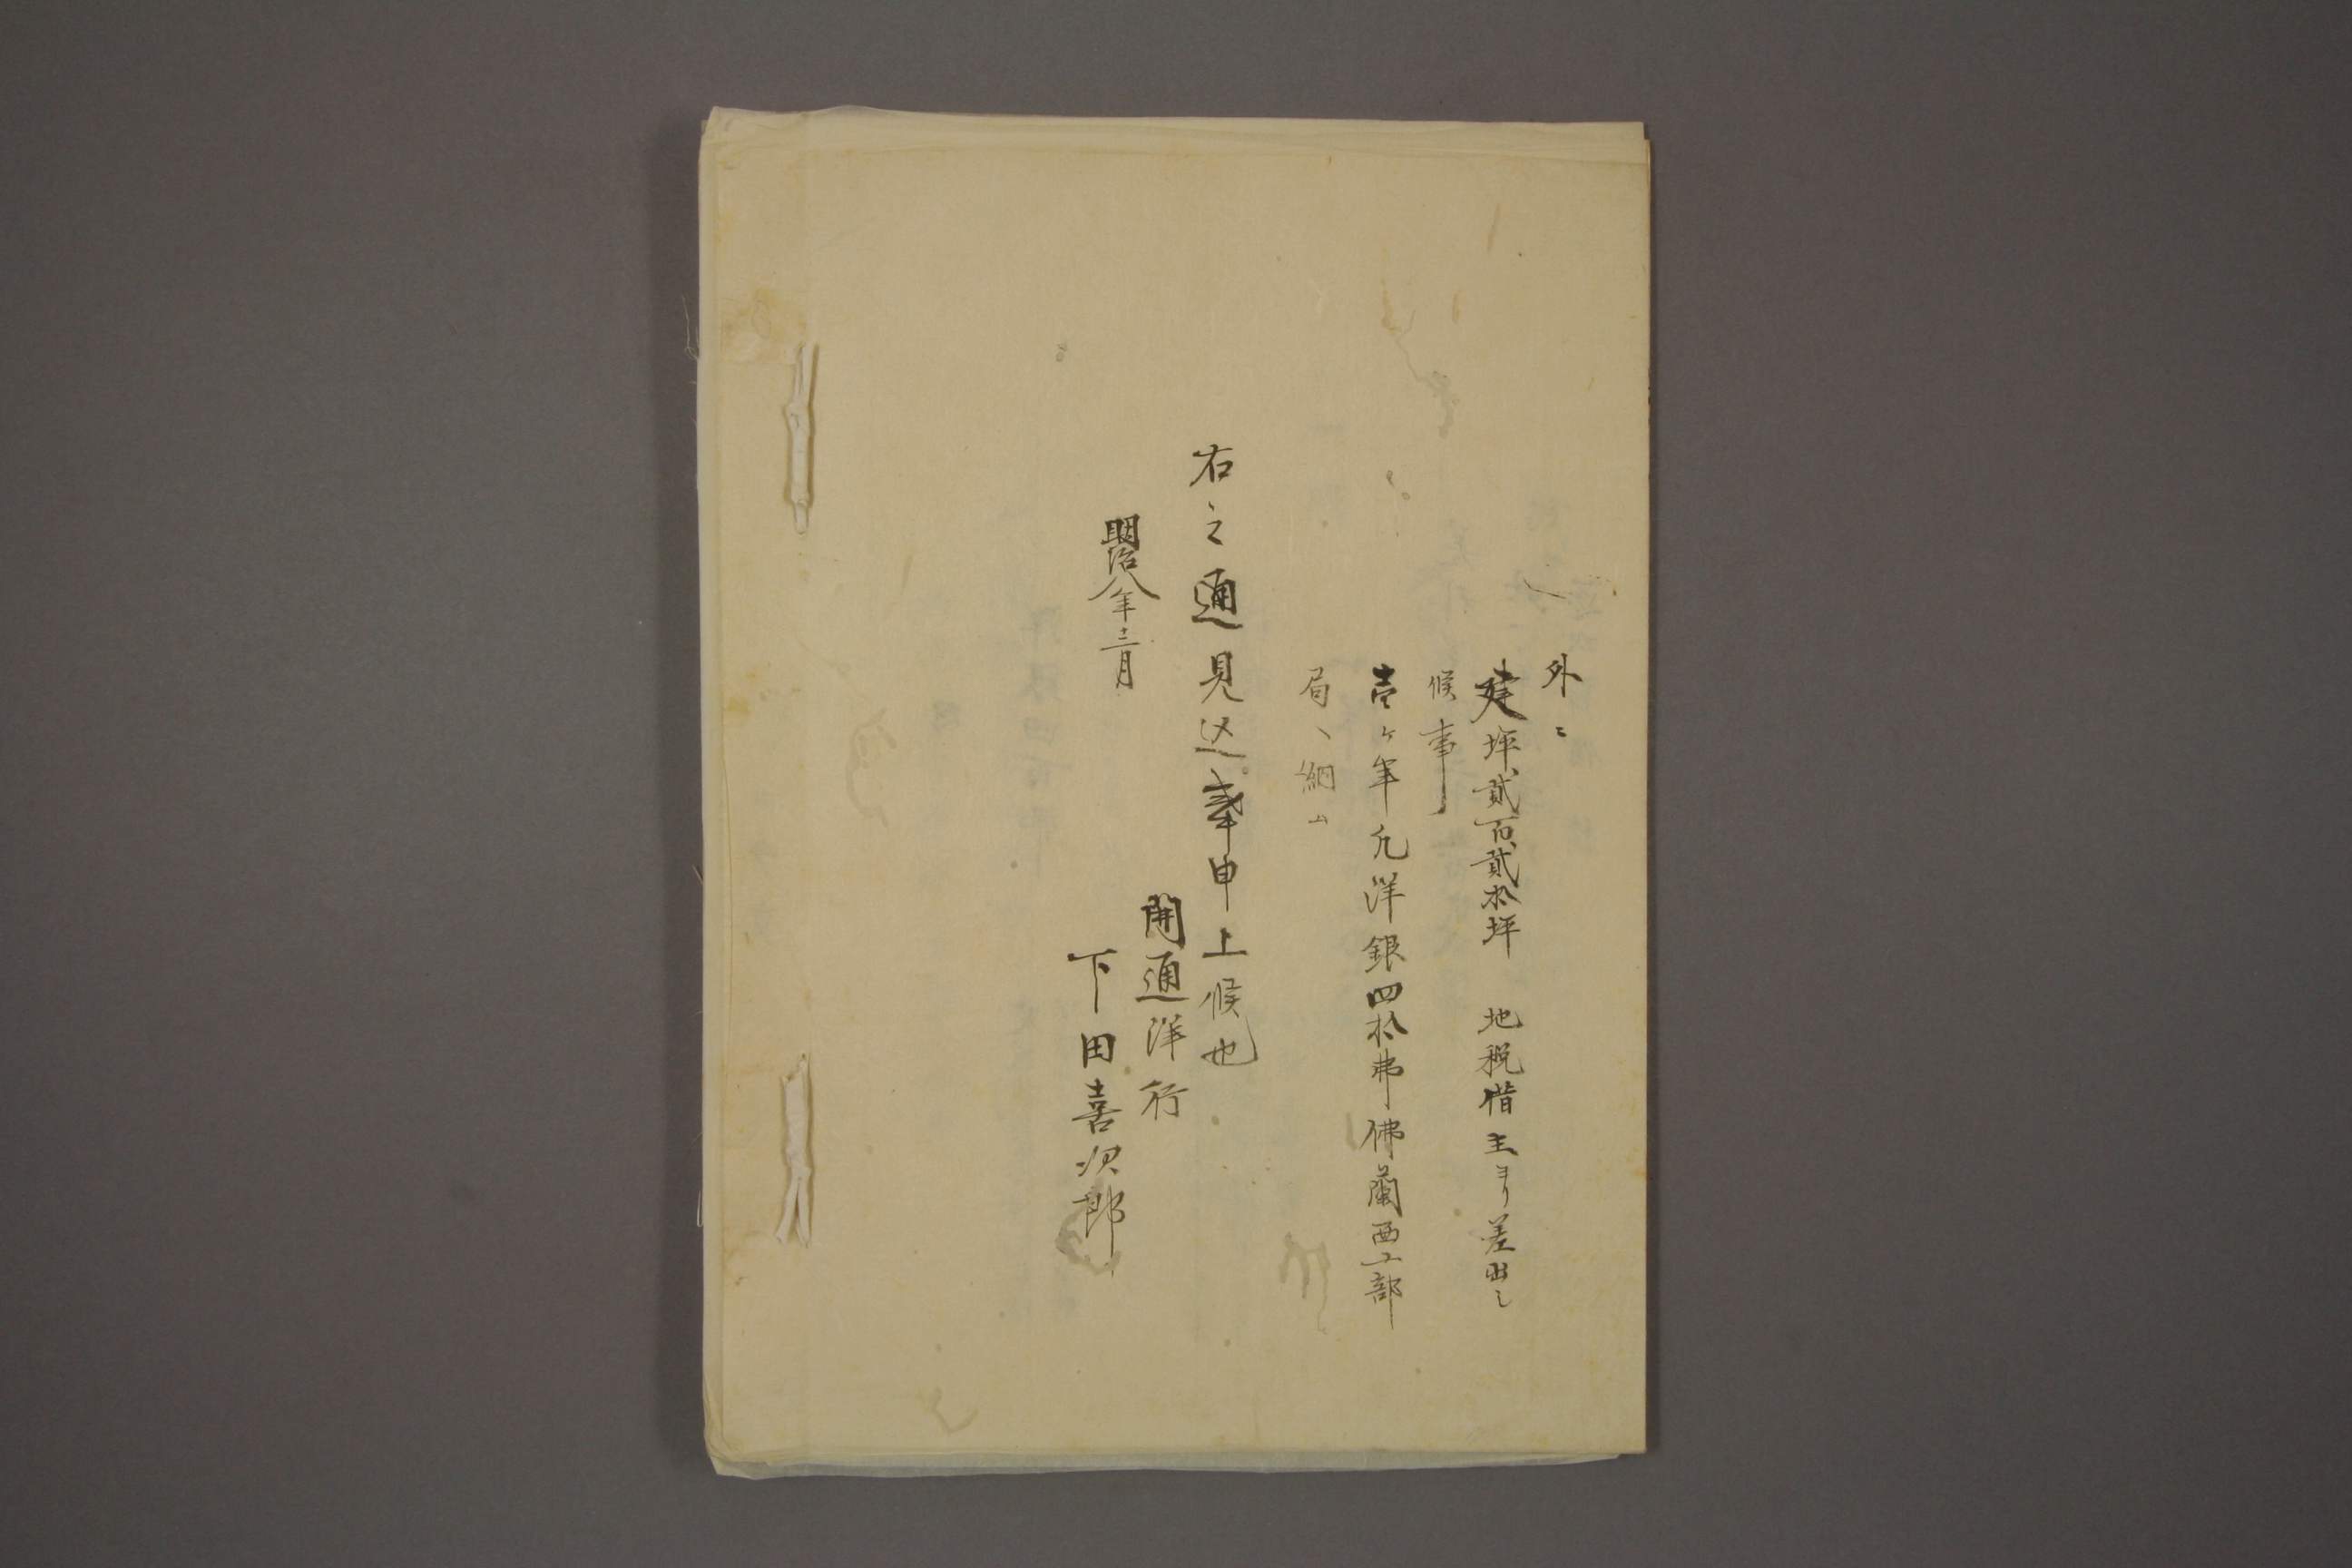 外ニ
建坪貳百貳拾坪　地税借主ヨリ差出シ
候事
壹ヶ年凡洋銀四拾弗佛蘭西工部
局へ納ム
右之通見込奉申上候也
開通洋行
明治八年十二月
下田喜次郎